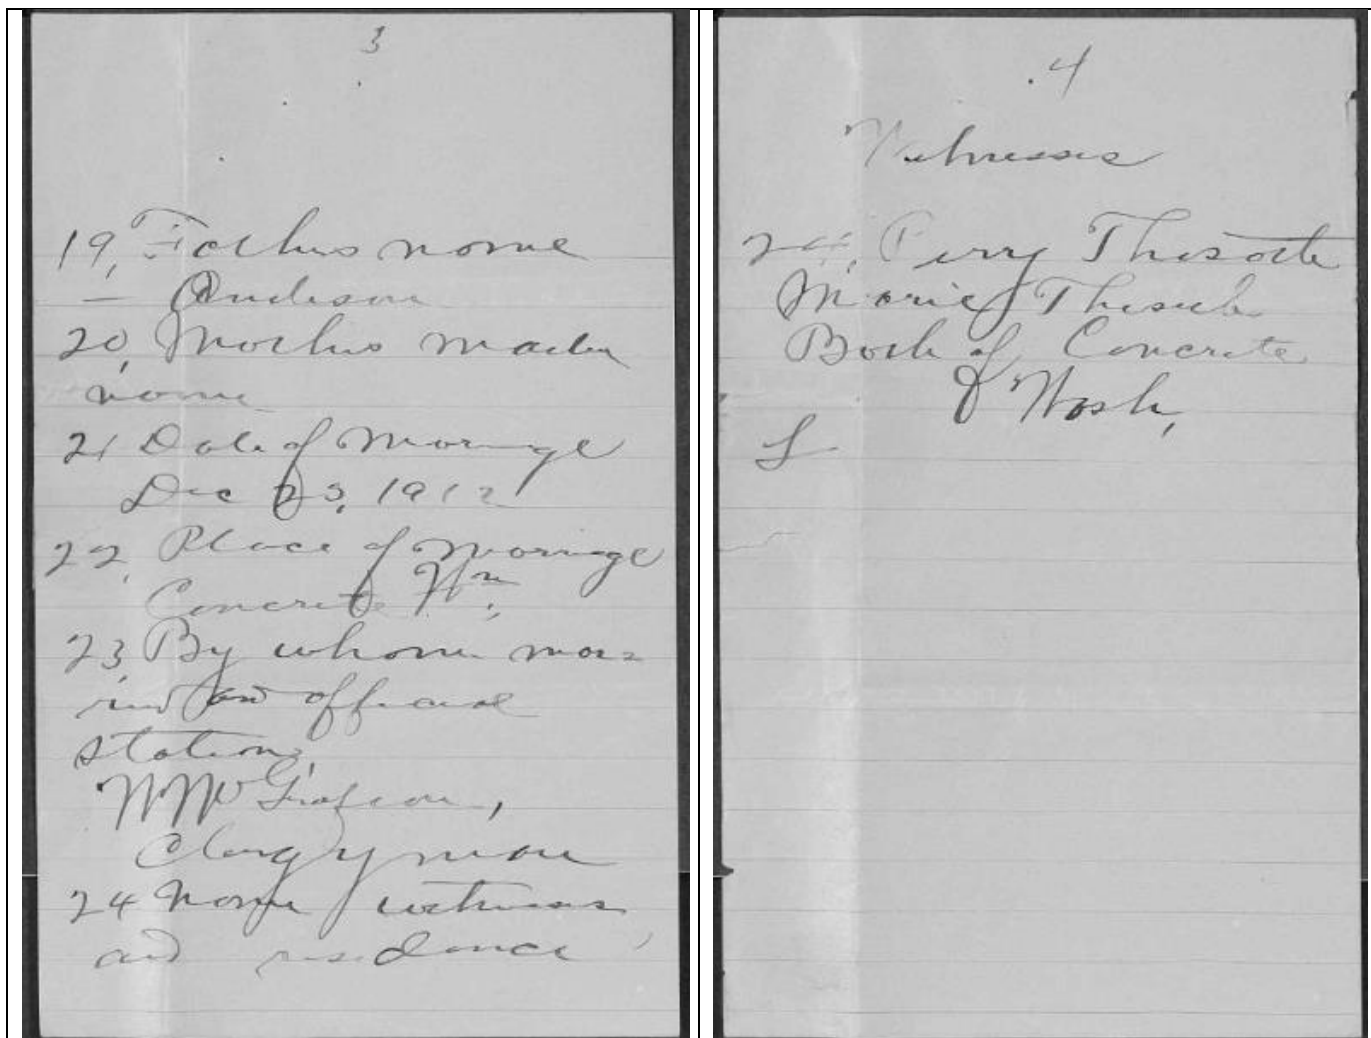 3
19, Fathers name
— Anderson
20, Mothers maiden
name
21 Date of Marriage
Dec 23, 1912
22, Place of Marriage
Concrete Wn.
23, By whom mar=
ried and official
station,
Clergyman
24 Name witnesses
and residence
4
Witnesses
24, Perry
Marie
Both of Concrete
Wash,